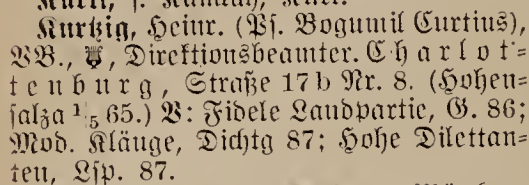 Kurtzig, Heinr. (Ps. Bogumil Curtius),
VB., Direktionsbeamter. Charlot=
tenburg, Straße 17b Nr. 8. (Hohen=
salza 1/5 65.) V: Fidele Landpartie, G. 86;
Mod. Kläuge, Dichtg 87; Hohe Dilettan=
ten, Lsp. 87.